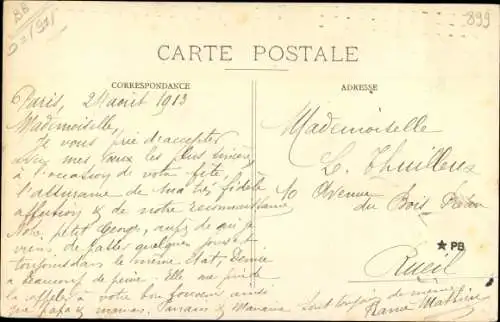 BB
899
CARTE POSTALE
CORRESPONDANCE
ADRESSE
Paris, 24 août 1913
Mademoiselle,
Je vous prie d'accepter
mes vœux les plus sincères
à l'occasion de votre fête,
l'assurance de ma très fidèle
affection & de notre reconnaissance
Notre petit Georges, auprès de qui je
viens de passer quelques jours est
toujours dans le même état, Denise
a beaucoup de peine. Elle me prie de
la rappeler à votre bon souvenir ainsi
que papa & maman. Parrain & Marraine sont toujours de même
Mademoiselle
L. Thuilleux
10 Avenue
du Bois-Préau
★ PB
Rueil